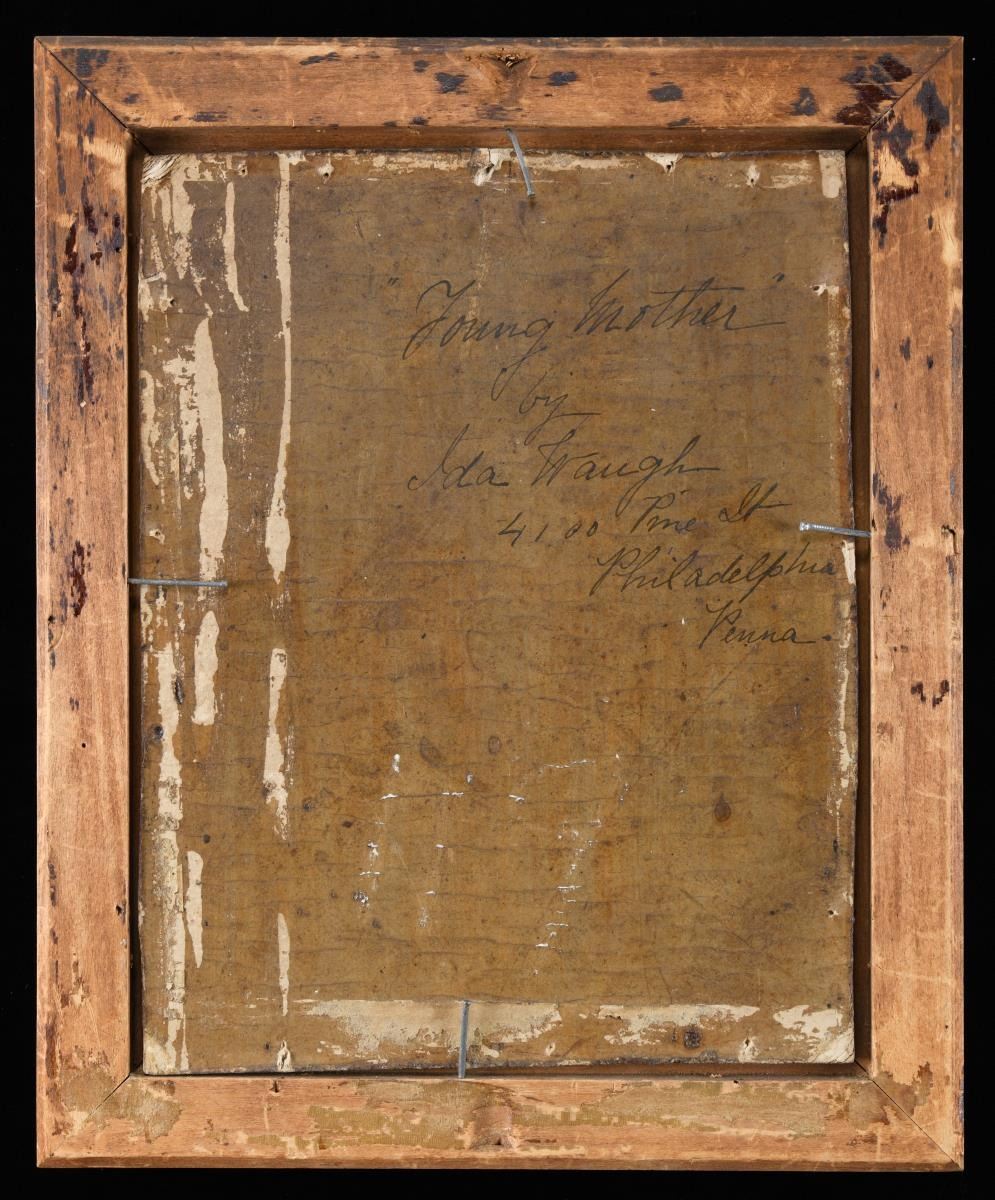 "Young Mother"
by
Ida Waugh
4100 Pine St
Philadelphia
Penna.